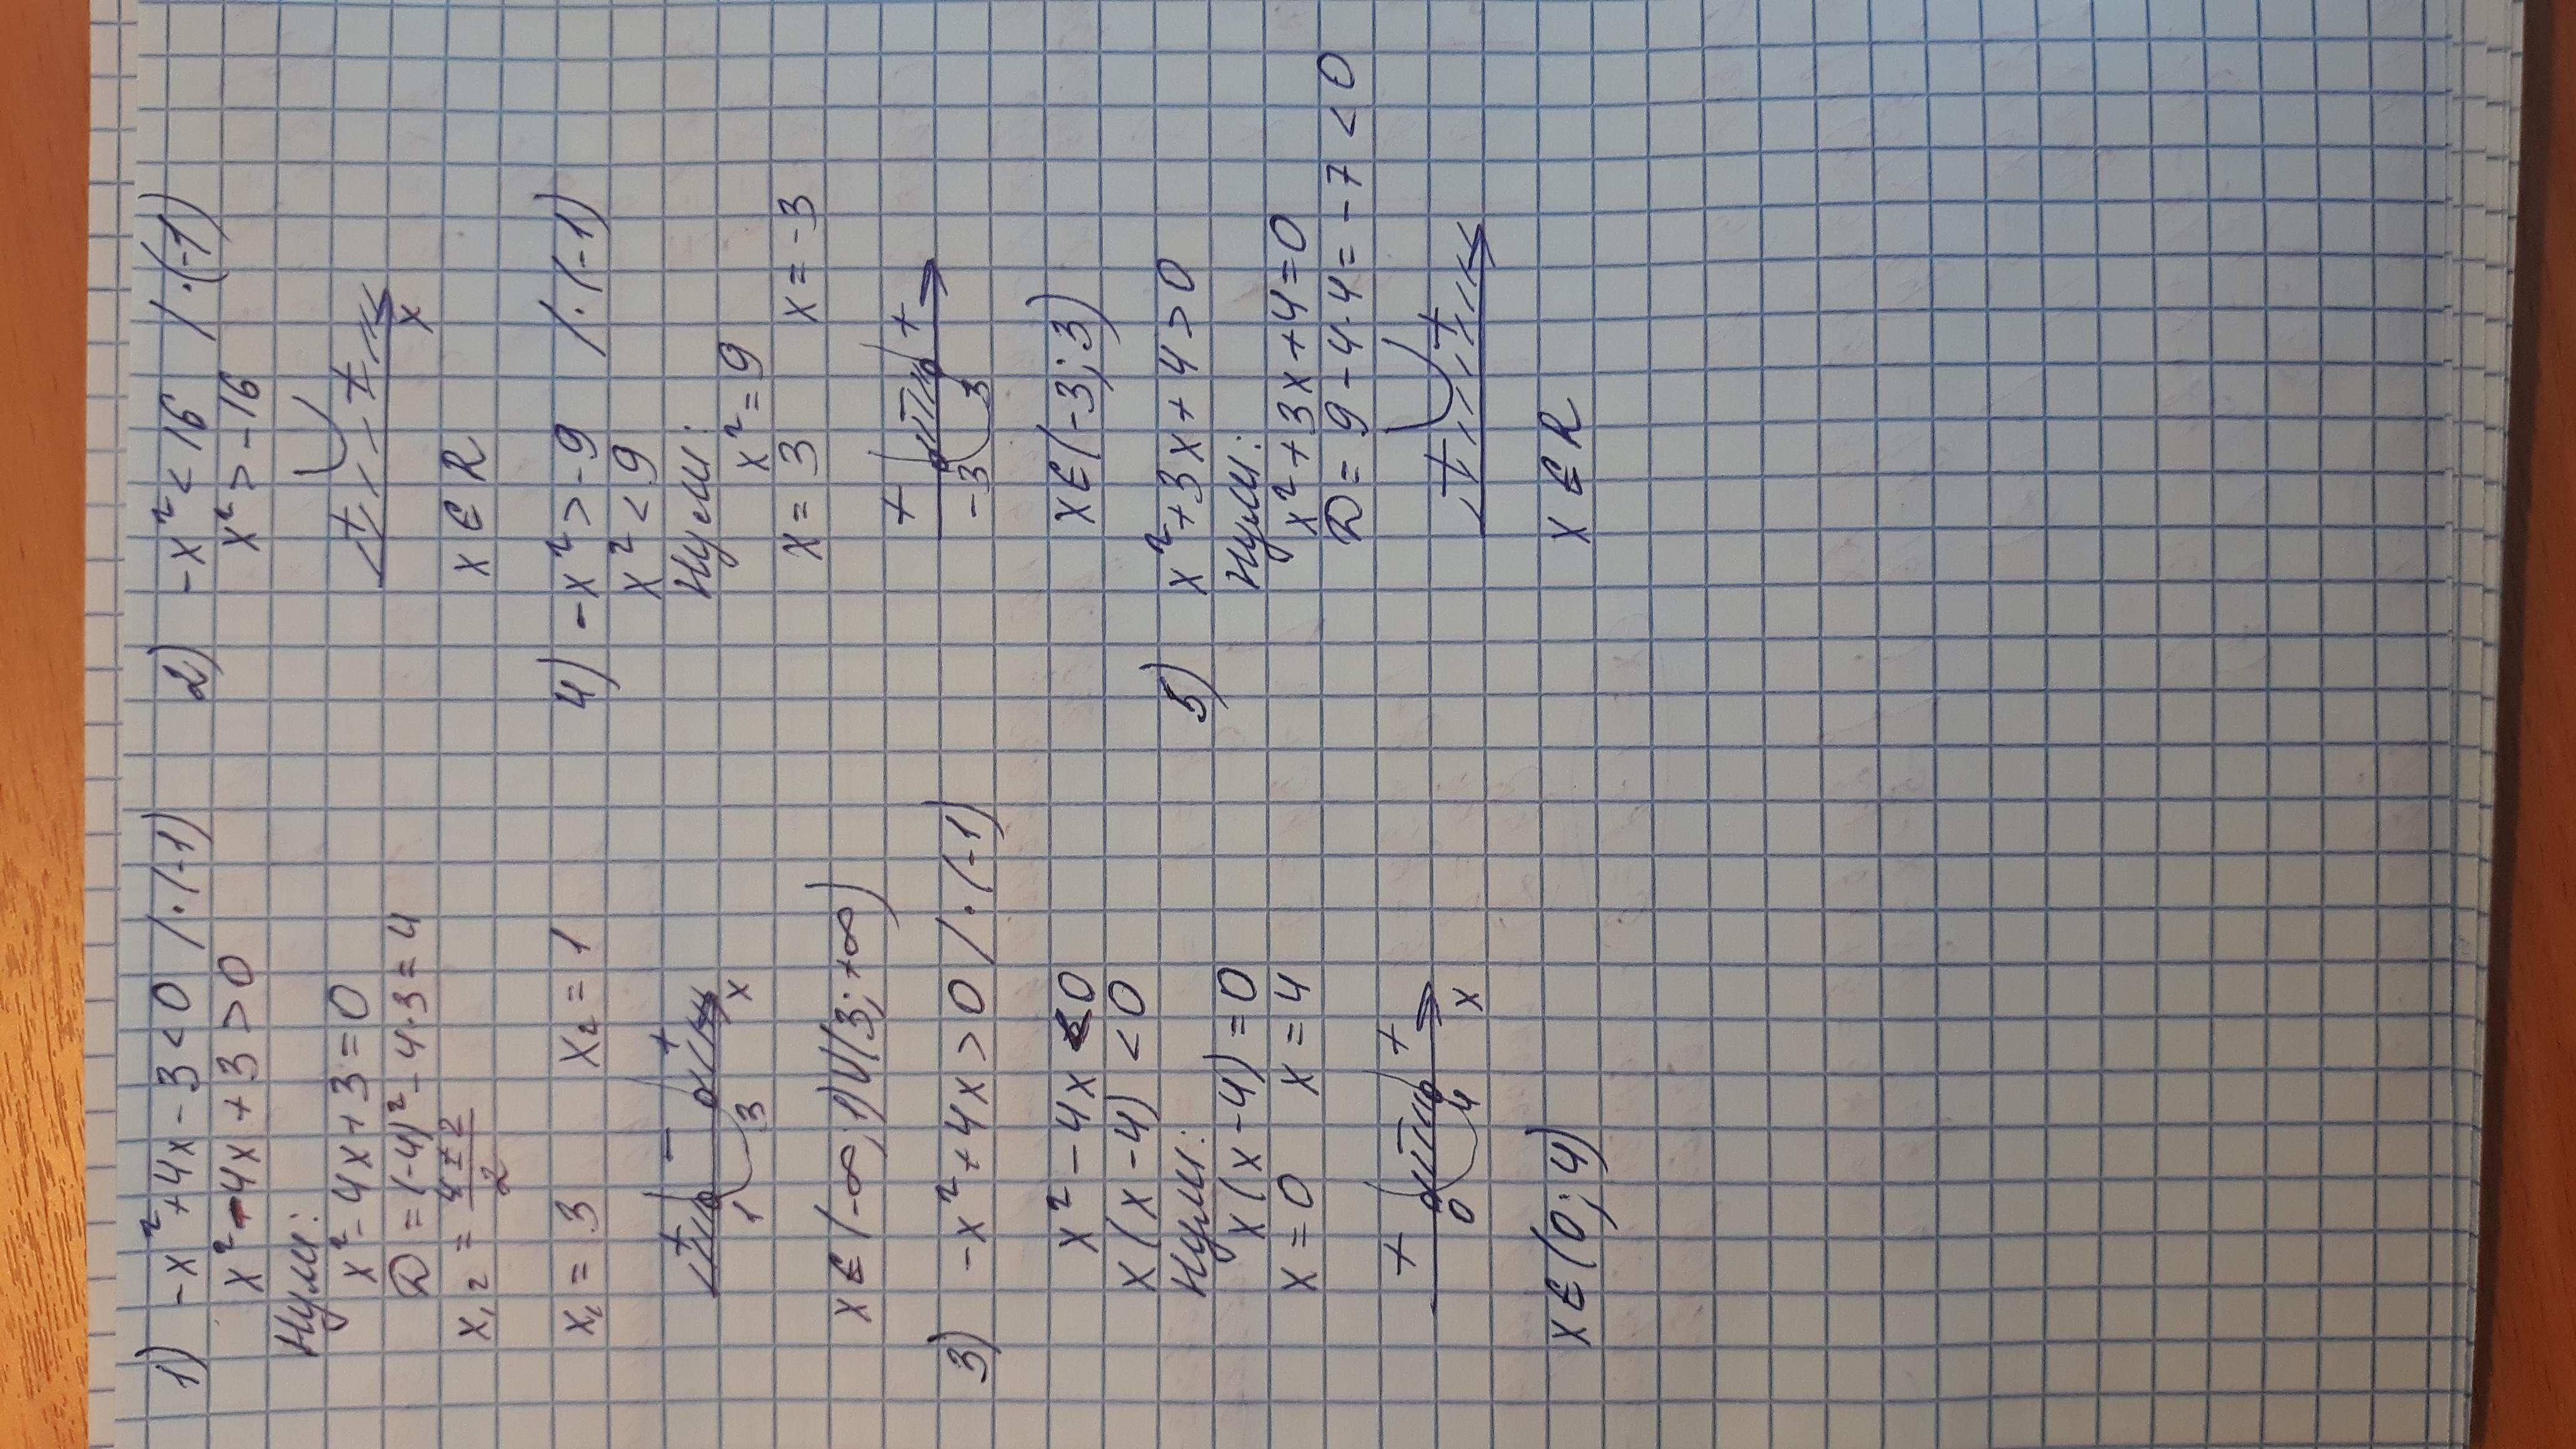 1) -x²+4x-3<0 /·(-1)
x²-4x+3>0
Нули:
x²-4x+3=0
D=(-4)²-4·3=4
x₁₂ = (4±2)/2
x₁=3 x₂=1
+ - +
1 3 x
x∈(-∞;1)U(3;+∞)
3) -x²+4x>0 /·(-1)
x²-4x<0
x(x-4)<0
Нули:
x(x-4)=0
x=0 x=4
+ - +
0 4 x
x∈(0;4)
2) -x²<16 /·(-1)
x²>-16
+ +
x
x∈R
4) -x²>-9 /·(-1)
x²<9
Нули:
x²=9
x=3 x=-3
+ - +
-3 3
x∈(-3;3)
5) x²+3x+4>0
Нули:
x²+3x+4=0
D=9-4·4=-7<0
+ +
x∈R